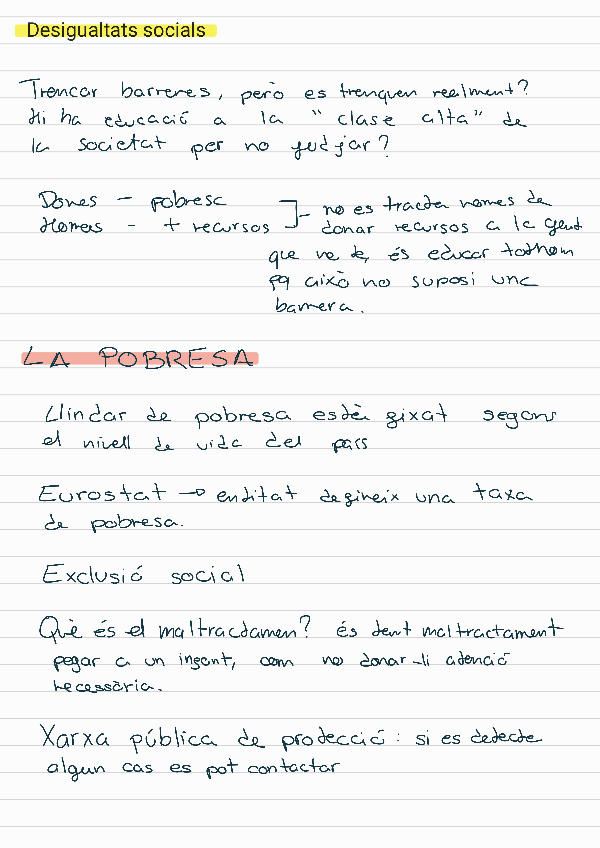 Desigualtats socials
Trencar barreres, però es trenquen realment?
Hi ha educació a la "clase alta" de
la societat per no judjar?
Dones - pobresa
Homes - + recursos
no es tracta nomes de
donar recursos a la gent
que ve de, és educar tothom
pq això no suposi una
barrera.
LA POBRESA
Llindar de pobresa està fixat segons
el nivell de vida del pais
Eurostat → entitat defineix una taxa
de pobresa.
Exclusió social
Què és el maltractamen? és tant maltractament
pegar a un infant, com no donar-li atenció
necessària.
Xarxa pública de protecció: si es detecte
algun cas es pot contactar